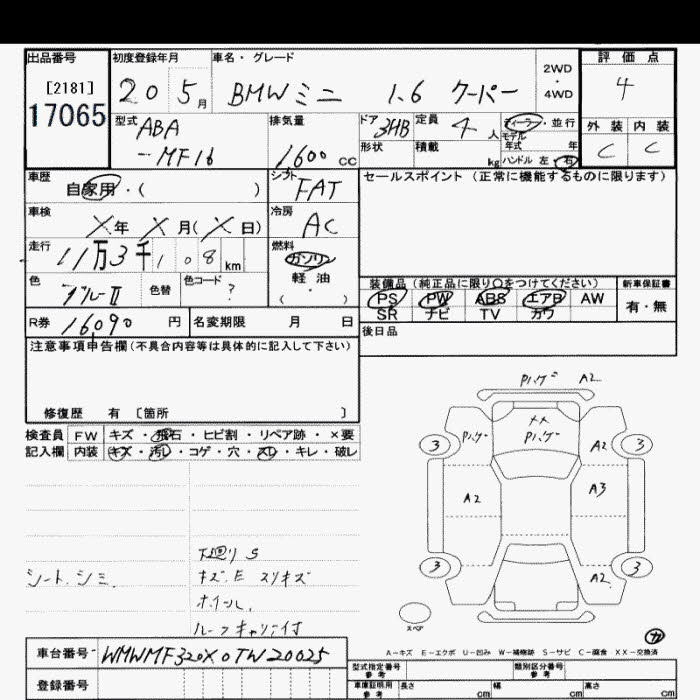 出品番号 初度登録年月 車名・グレード 2WD・4WD 評価点
[2181] 17065 20 5月 BMWミニ 1.6 クーパー 4
型式 ABA-MF16 排気量 1600 CC ドア 3HB 定員 4人 ディーラー・並行 モデル年式 年 外装 内装
形状 積載 kg ハンドル 左・右 C C
車歴 自家用・( ) シフト FAT セールスポイント (正常に機能するものに限ります)
車検 X年 X月(X日) 冷房 AC
走行 11万3千108km 燃料 ガソリン 軽油・( )
色 ブルーII 色替 色コード ?
装備品 (純正品に限り○をつけてください) 新車保証書
PS PW ABS エアB AW 有・無
SR ナビ TV カワ
R券 16,090 円 名変期限 月 日 後日品
注意事項申告欄(不具合内容等は具体的に記入して下さい)
修復歴 有 〔箇所 〕
検査員 FW キズ・飛石・ヒビ割・リペア跡・×要
記入欄 内装 キズ・汚レ・コゲ・穴・スレ・キレ・破レ
Pハゲ A2
XX
Pハゲ Pハゲ A2
3 3
A2 A3
3 3
A2
下廻りS
シート.シミ. キズ.E スリキズ
ホイール.
ルーフキャリア付
スペア
カ
A-キズ E-エクボ U-凹み W-補修跡 S-サビ C-腐食 XX-交換済
車台番号 WMWMF320X0TW20025
型式指定番号 参考 類別区分番号 参考
登録番号 車庫証明用 参考 長さ cm 幅 cm 高さ cm